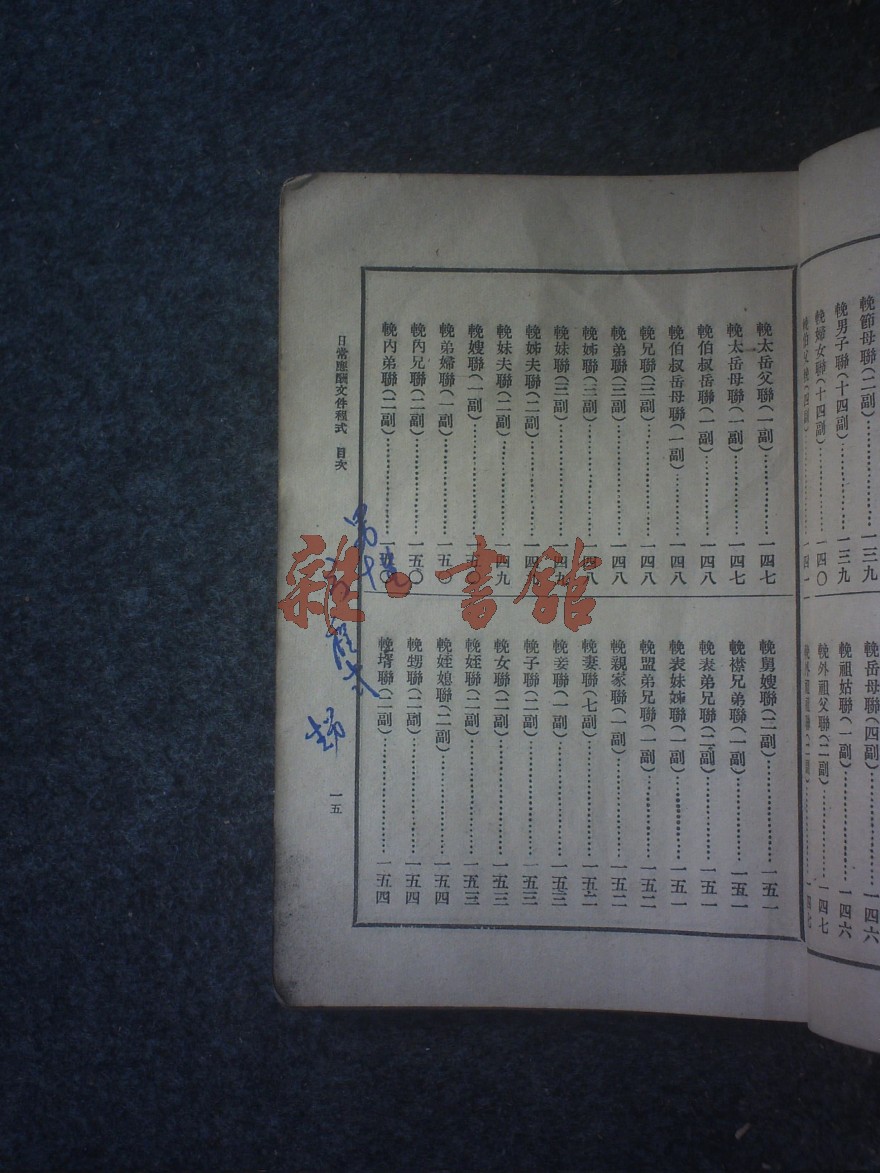 輓節母聯(二副)…………一三九
輓男子聯(十四副)…………一三九
輓婦女聯(十四副)…………一四〇
輓岳母聯(四副)…………一四六
輓祖姑聯(一副)…………一四六
輓外祖父聯(二副)…………一四七
輓太岳父聯(一副)…………一四七
輓太岳母聯(一副)…………一四七
輓伯叔岳聯(一副)…………一四八
輓伯叔岳母聯(一副)…………一四八
輓兄聯(三副)…………一四八
輓弟聯(三副)…………一四八
輓姊聯(三副)…………一四八
輓妹聯(三副)…………一四九
輓姊夫聯(二副)…………一四九
輓妹夫聯(二副)…………一四九
輓嫂聯(一副)…………一五〇
輓弟婦聯(一副)…………一五〇
輓內兄聯(二副)…………一五〇
輓內弟聯(二副)…………一五〇
輓舅嫂聯(二副)…………一五一
輓襟兄弟聯(一副)…………一五一
輓表弟兄聯(二副)…………一五一
輓表妹姊聯(一副)…………一五一
輓盟弟兄聯(一副)…………一五二
輓親家聯(一副)…………一五二
輓妻聯(七副)…………一五二
輓妾聯(一副)…………一五三
輓子聯(二副)…………一五三
輓女聯(二副)…………一五三
輓姪聯(二副)…………一五三
輓姪媳聯(二副)…………一五四
輓甥聯(二副)…………一五四
輓壻聯(二副)…………一五四
日常應酬文件程式 目次
一五
雜·書館